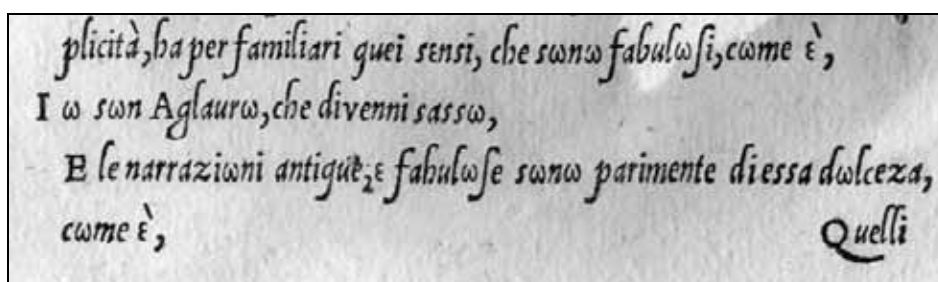 plicità, ha per familiari quei sεnsi, che sωnω fabulωſi, cωme ὲ,
I ω sωn Aglaurω, che divenni sassω,
E le narraziωni antiquε, ε fabulωſe sωnω parimente di essa dωlceza,
cωme ὲ,
Quelli